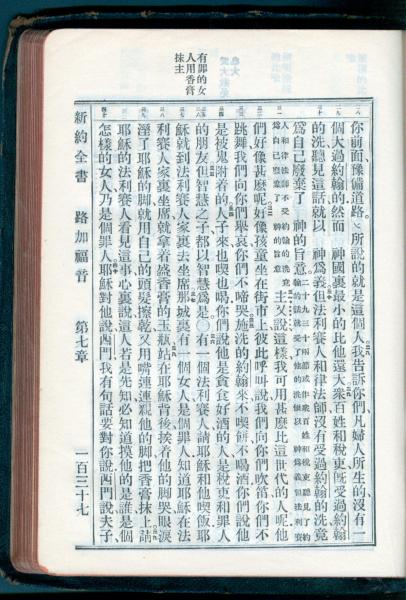 有罪的女
人用香膏
抹主
你前面豫備道路、所說的就是這個人我告訴你們凡婦人所生的沒有一
個大過約翰的然而　神國裏最小的比他還大衆百姓和稅吏旣受過約翰
的洗聽見這話就以　神爲義但法利賽人和律法師沒有受過約翰的洗竟
爲自己廢棄了　神的旨意二十九三十兩節或作衆百姓和稅吏聽見了約翰的話就受了他的洗便以神爲義但法利賽
人和律法師不受約翰的洗竟爲自己廢棄了神的旨意主又說這樣我可用甚麼比這世代的人呢他
們好像甚麼呢好像孩童坐在街市上彼此呼叫說我們向你們吹笛你們不
跳舞我們向你們舉哀你們不啼哭施洗的約翰來不喫餅不喝酒你們說他
是被鬼附着的人子來也喫也喝你們說他是貪食好酒的人是稅吏和罪人
的朋友但智慧之子都以智慧爲是○有一個法利賽人請耶穌和他喫飯耶
穌就到法利賽人家裏去坐席那城裏有一個女人是個罪人知道耶穌在法
利賽人家裏坐席就拿着盛香膏的玉瓶站在耶穌背後挨着他的脚哭眼淚
溼了耶穌的脚就用自己的頭髮擦乾又用嘴連連親他的脚把香膏抹上請
耶穌的法利賽人看見這事心裏說這人若是先知必知道摸他的是誰是個
怎樣的女人乃是個罪人耶穌對他說西門我有句話要對你說西門說夫子
新約全書　路加福音　第七章　一百三十七